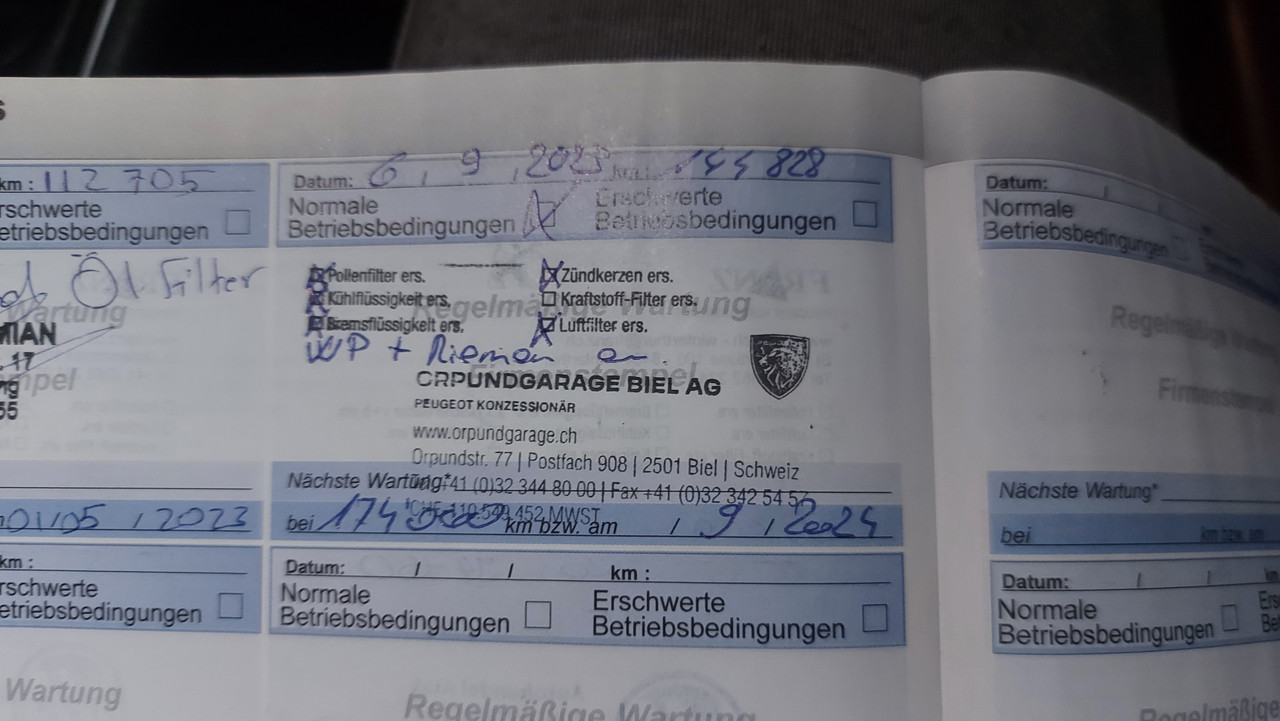 km : 112 705
rschwerte
etriebsbedingungen
Öl Filter
Wartung
MIAN
17
pel
55
01/05 / 2023
km :
rschwerte
etriebsbedingungen
Wartung
Datum: 6 , 9 , 2023 144 828
Normale
Betriebsbedingungen
Erschwerte
Betriebsbedingungen
Pollenfilter ers.
Zündkerzen ers.
Kühlflüssigkeit ers.
Kraftstoff-Filter ers.
Regelmäßige Wartung
Bremsflüssigkeit ers.
Luftfilter ers.
WP + Riemen
Firmenstempel
ORPUNDGARAGE BIEL AG
PEUGEOT KONZESSIONÄR
www.orpundgarage.ch
Orpundstr. 77 | Postfach 908 | 2501 Biel | Schweiz
Nächste Wartung*
+41 (0)32 344 80 00 | Fax +41 (0)32 342 54 52
bei 174 000 km bzw. am / 9 / 2024
Datum: / / km :
Normale
Betriebsbedingungen
Erschwerte
Betriebsbedingungen
Regelmäßige Wartung
Datum: /
Normale
Betriebsbedingungen
Regelmäßige
Firmenstempel
Nächste Wartung*
bei km bzw. am
Datum: / /
Normale
Betriebsbedingungen
Regelmäßige